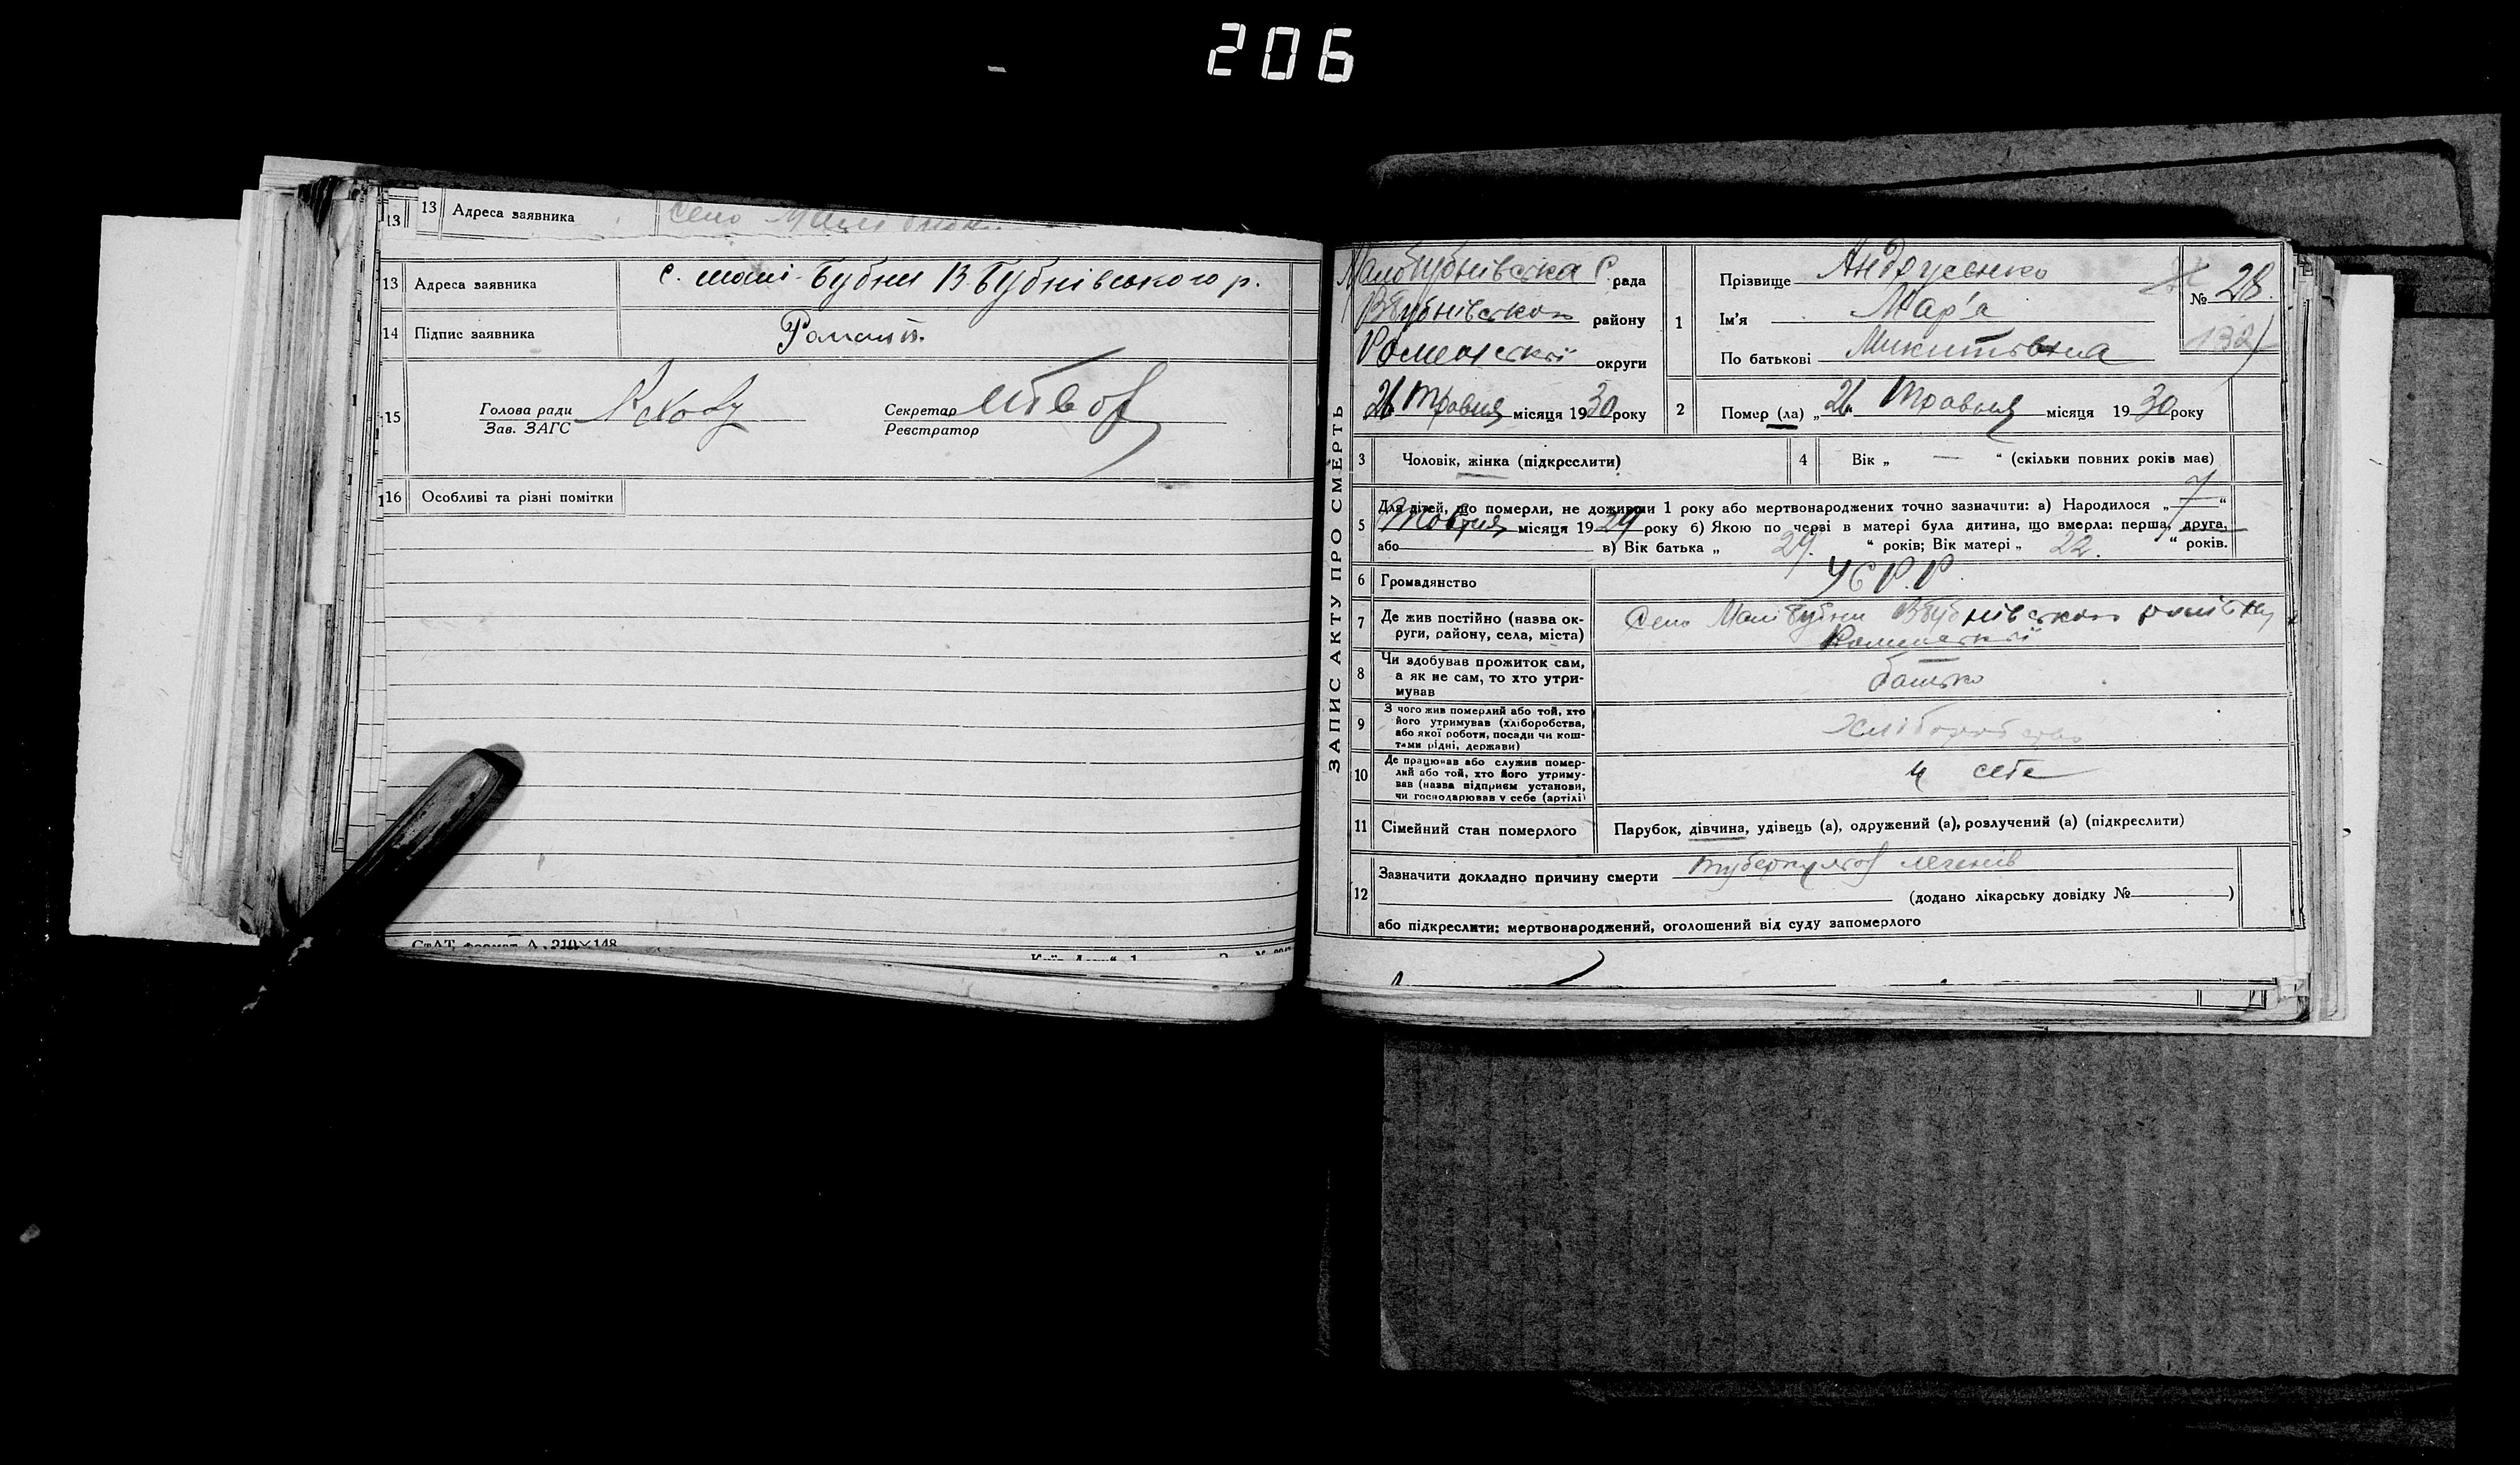 206
13 Адреса заявника село Малі Бубни
13
13 Адреса заявника с. малі-Бубни В-Бубнівського р.
14 Підпис заявника
15 Голова ради
Зав. ЗАГС
Секретар
Реєстратор
16 Особливі та різні помітки
СтАТ. формат А 210×148
ЗАПИС АКТУ ПРО СМЕРТЬ
Малобубнівська С. рада
ВБубнівсько району
Роменської округи
26 Травня місяця 1930 року
1 Прізвище Андрусенко
Ім'я Мар'я
По батькові Микитівна
№ 28.
132
2 Помер (ла) „ 26 Травня місяця 1930 року
3 Чоловік, жінка (підкреслити)
4 Вік „ — “ (скільки повних років має)
5 Для дітей, що померли, не доживши 1 року або мертвонароджених точно зазначити: а) Народилося „ 7 “
Жовтня місяця 1929 року б) Якою по черві в матері була дитина, що вмерла: перша, друга,
або в) Вік батька „ 29. “ років; Вік матері „ 22. “ років.
6 Громадянство УСРР
7 Де жив постійно (назва округи, району, села, міста) Село Малі Бубни ВБубнівсько району
Роменської
8 Чи здобував прожиток сам,
а як не сам, то хто утри-
мував батько
9 З чого жив померлий або той, хто
його утримував (хліборобства,
або якої роботи, посади чи кош-
тами рідні, держави) Хліборобство
10 Де працював або служив помер-
лий або той, хто його утриму-
вав (назва підприєм установи,
чи господарював у себе (артілі) у себе
11 Сімейний стан померлого Парубок, дівчина, удівець (а), одружений (а), розлучений (а) (підкреслити)
12 Зазначити докладно причину смерти туберкульоз легенів
(додано лікарську довідку № )
або підкреслити: мертвонароджений, оголошений від суду запомерлого